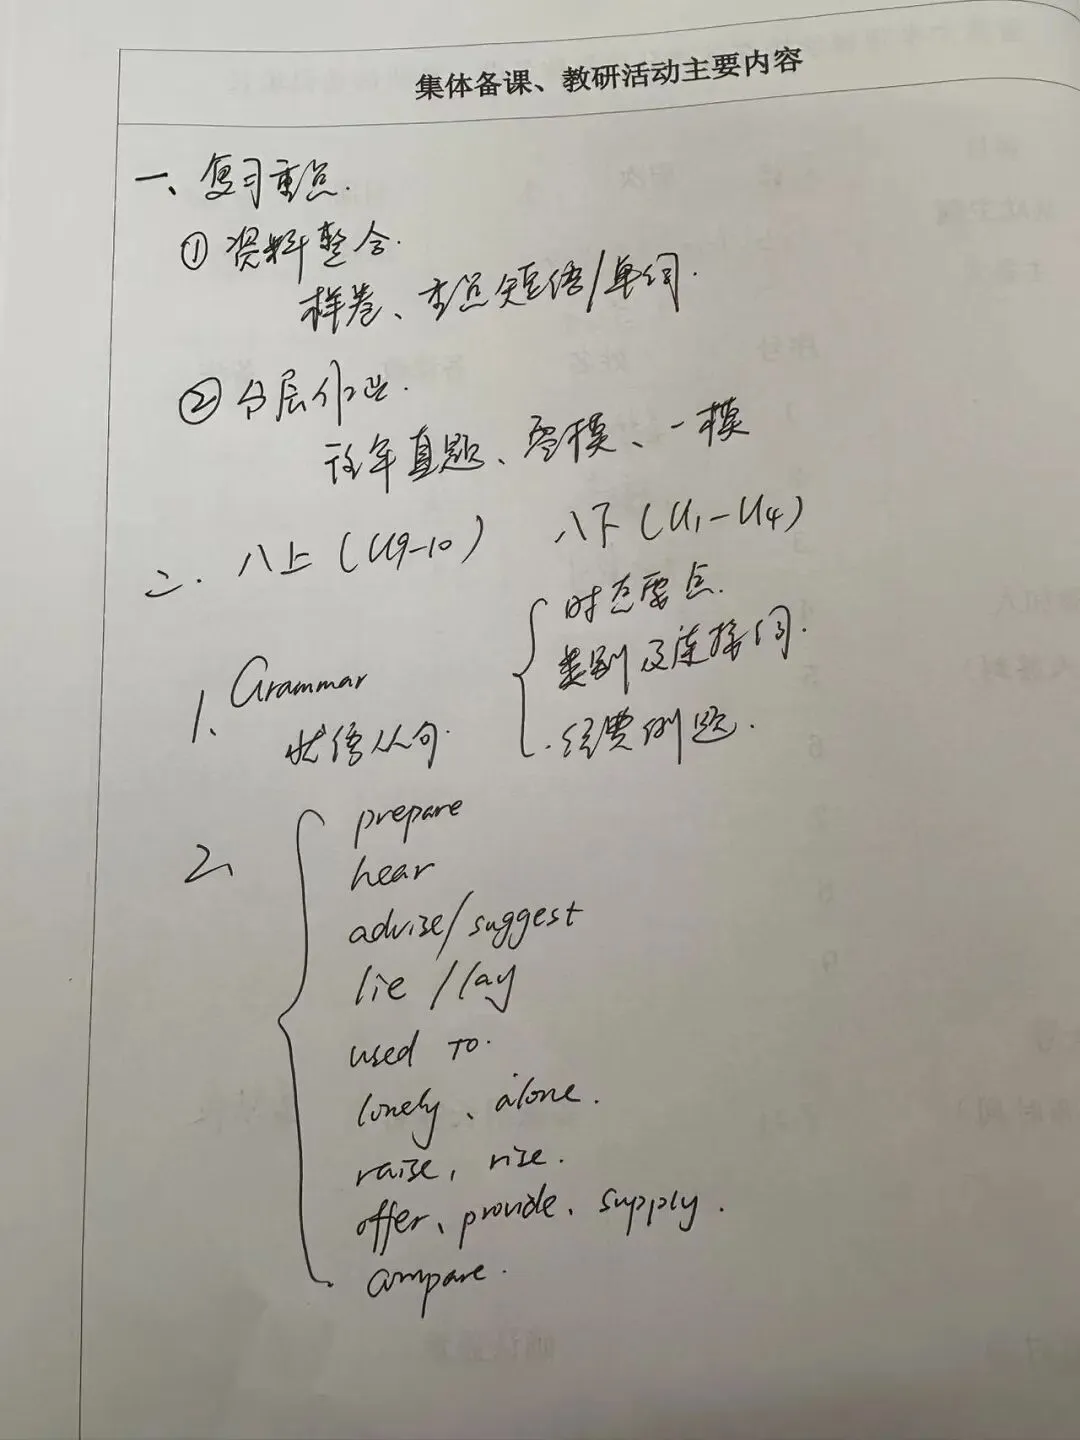 集体备课、教研活动主要内容
一、复习重点.
① 资料整合.
样卷、重点短语/单词.
② 分层作业.
往年真题、零模、一模
二. 八上 (U9-10) 八下 (U1-U4)
1、Grammar
状语从句.
时态要点.
类别及连接词.
经典例题.
2、
prepare
hear
advise/suggest
lie /lay
used to.
lonely、alone.
raise, rise.
offer、provide、supply.
compare.